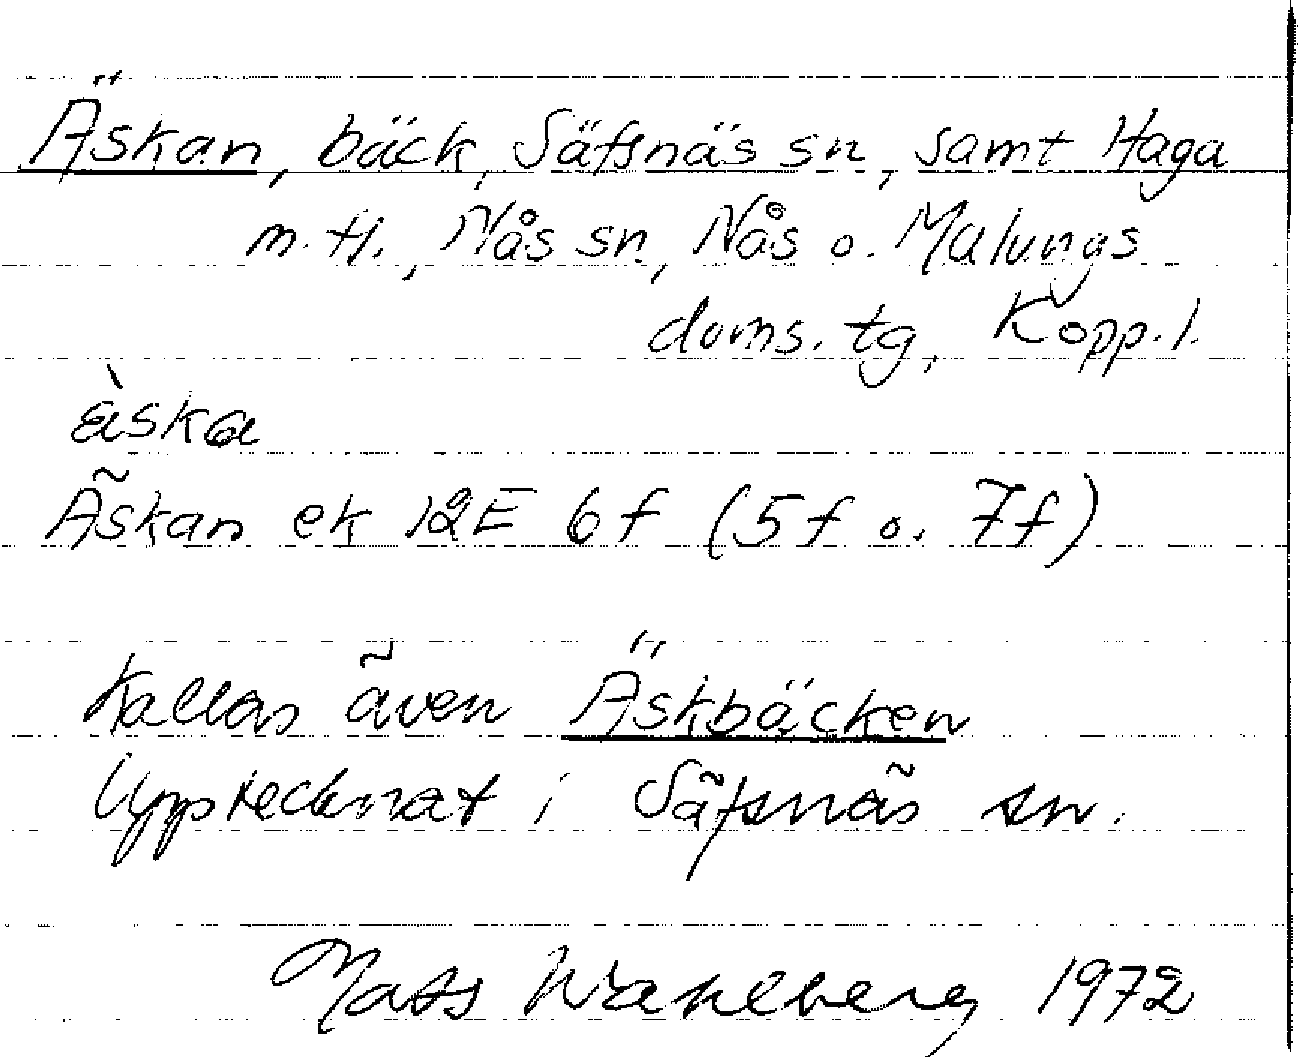 Äskan, bäck, Säfsnäs sn, samt Haga
m. fl., Nås sn, Nås o. Malungs
doms. tg, Kopp. l.
äska
Äskan ek 12E 6f (5f o. 7f)
Kallas även Äskbäcken
Upptecknat i Säfsnäs sn.
Mats Wahlberg 1972